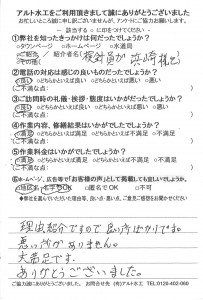 アルト水工をご利用頂きまして誠にありがとうございました
お忙しいところ誠に申し訳ございませんが、アンケートにご協力お願いします。
― 該当する ○ に印をつけてください ―
①弊社を知ったきっかけは何だったでしょうか?
○タウンページ ○ホームページ ○水道局
○その他
②電話の対応は感じの良いものだったでしょうか?
○良い ○どちらかといえば良い ○どちらかといえば悪い ○悪い
③ご訪問時の礼儀・挨拶・態度はいかがだったでしょうか?
○良い ○どちらかといえば良い ○どちらかといえば悪い ○悪い
④作業内容、修繕結果はいかがだったでしょうか?
○満足 ○どちらかといえば満足 ○どちらかといえば不満足 ○不満足
⑤作業料金はいかがだったでしょうか?
○満足 ○どちらかといえば満足 ○どちらかといえば不満足 ○不満足
⑥ホームページ、広告等で“お客様の声”として掲載しても宜しいでしょうか。
○匿名でOK ○不可
◆弊社を選んでいただいた理由、良かった点、悪かった点、ご感想をお書きください。
理由紹介ですので良い所ばかりです。
悪い所がありません。
大満足です。
ありがとうございました。
ご協力誠にありがとうございました。 お問合せ先 (有)アルト水工 TEL.0120-402-060